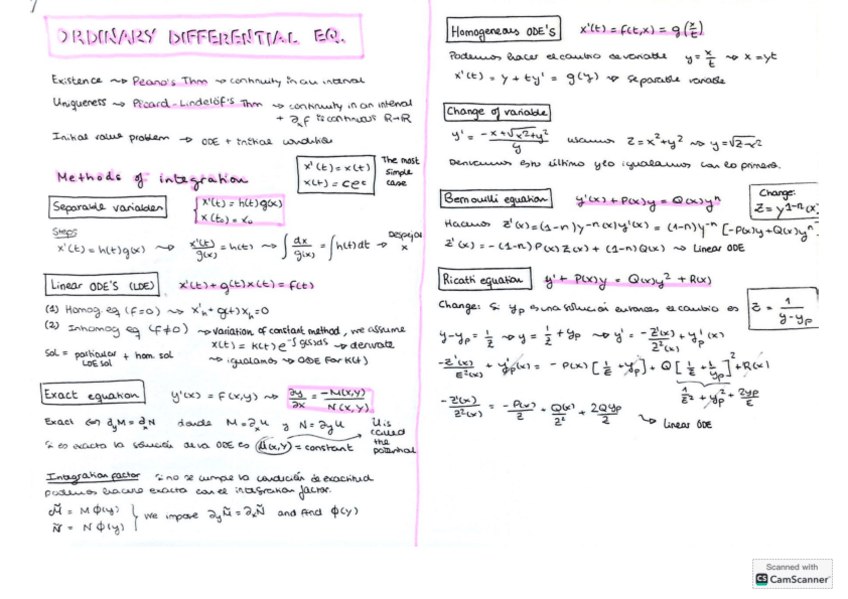 ORDINARY DIFFERENTIAL EQ.
Existence ⇝ Peano's Thm ⇝ continuity in an interval
Uniqueness ⇝ Picard-Lindelöf's Thm ⇝ continuity in an interval
+ ∂ₓf is continuous R→R
Initial value problem → ODE + initial condition
x'(t) = x(t)
x(t) = ce^t
The most
simple
case
Methods of integration
Separable variables
x'(t) = h(t)g(x)
x(t₀) = x₀
Steps
x'(t) = h(t)g(x) ⇝ x'(t)/g(x) = h(t) ⇝ ∫ dx/g(x) = ∫ h(t)dt → Despejar x
Linear ODE'S (LDE) x'(t) + g(t)x(t) = f(t)
(1) Homog eq (f=0) ⇝ x'ₕ + g(t)xₕ = 0
(2) Inhomog eq (f≠0) ⇝ variation of constant method, we assume
x(t) = k(t)e^-∫g(s)ds → derivate
sol = particular LDE sol + hom. sol
⇝ igualamos ⇝ ODE for k(t)
Exact equation y'(x) = f(x,y) ⇝ ∂y/∂x = -M(x,y)/N(x,y)
Exact ⇔ ∂yM = ∂xN donde M = ∂xu y N = ∂yu
U is
called
the
potential
Si es exacta la solución de la ODE es U(x,y) = constant
Integration factor Si no se cumple la condición de exactitud
podemos hacerlo exacta con el integration factor.
M̃ = Mφ(y)
Ñ = Nφ(y)
We impose ∂yM̃ = ∂xÑ and find φ(y)
Homogeneous ODE'S x'(t) = f(t,x) = g(x/t)
Podemos hacer el cambio de variable y = x/t ⇝ x = yt
x'(t) = y + ty' = g(y) ⇝ Separable variable
Change of variable
y' = (-x+√(x²+y²))/y usamos z = x²+y² ⇝ y = √(z-x²)
Derivamos esto último y lo igualamos con lo primero.
Bernouilli equation y'(x) + P(x)y = Q(x)yⁿ
Change:
z = y^(1-n)(x)
Hacemos z'(x) = (1-n)y^-n(x)y'(x) = (1-n)y^-n [-P(x)y + Q(x)yⁿ]
z'(x) = -(1-n)P(x)z(x) + (1-n)Q(x) ⇝ Linear ODE
Ricatti equation y' + P(x)y = Q(x)y² + R(x)
Change: Si yp es una solución entonces el cambio es z = 1/(y-yp)
y-yp = 1/z ⇝ y = 1/z + yp ⇝ y' = -z'(x)/z²(x) + yp'(x)
-z'(x)/z²(x) + yp'(x) = -P(x)[1/z + yp] + Q[1/z + yp]² + R(x)
1/z² + yp² + 2yp/z
-z'(x)/z²(x) = -P(x)/z + Q(x)/z² + 2Qyp/z
↪ Linear ODE
Scanned with
CS CamScanner